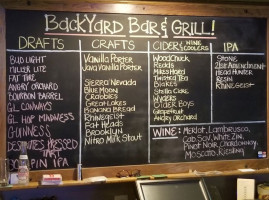 BACKYARD BAR & GRILL!
DRAFTS
BUD LIGHT
MILLER LITE
FAT TIRE
ANGRY ORCHARD
BOURBON BARREL
GL CONWAYS
GL HOP MADNESS
GUINNESS
CRAFTS
Vanilla Porter
Java Vanilla Porter
Sierra Nevada
Blue Moon
Crabbies
Great Lakes
Bonanza Bread
Rhinegeist
Fat Heads
Brooklyn
Nitro Milk Stout
CIDER & WINE COOLERS
Woodchuck
Redds
Mikes Hard
Twisted Tea
Blakes
Stella Cidre
Wyders
Cider Boys
Grapefruit
Angry Orchard
IPA
Stone
2nd Amendment
Head Hunter
Resin
Rhinegeist
WINE: Merlot, Lambrusco,
Cab Sav, White Zin,
Pinot Noir, Chardonnay,
Moscato, Riesling